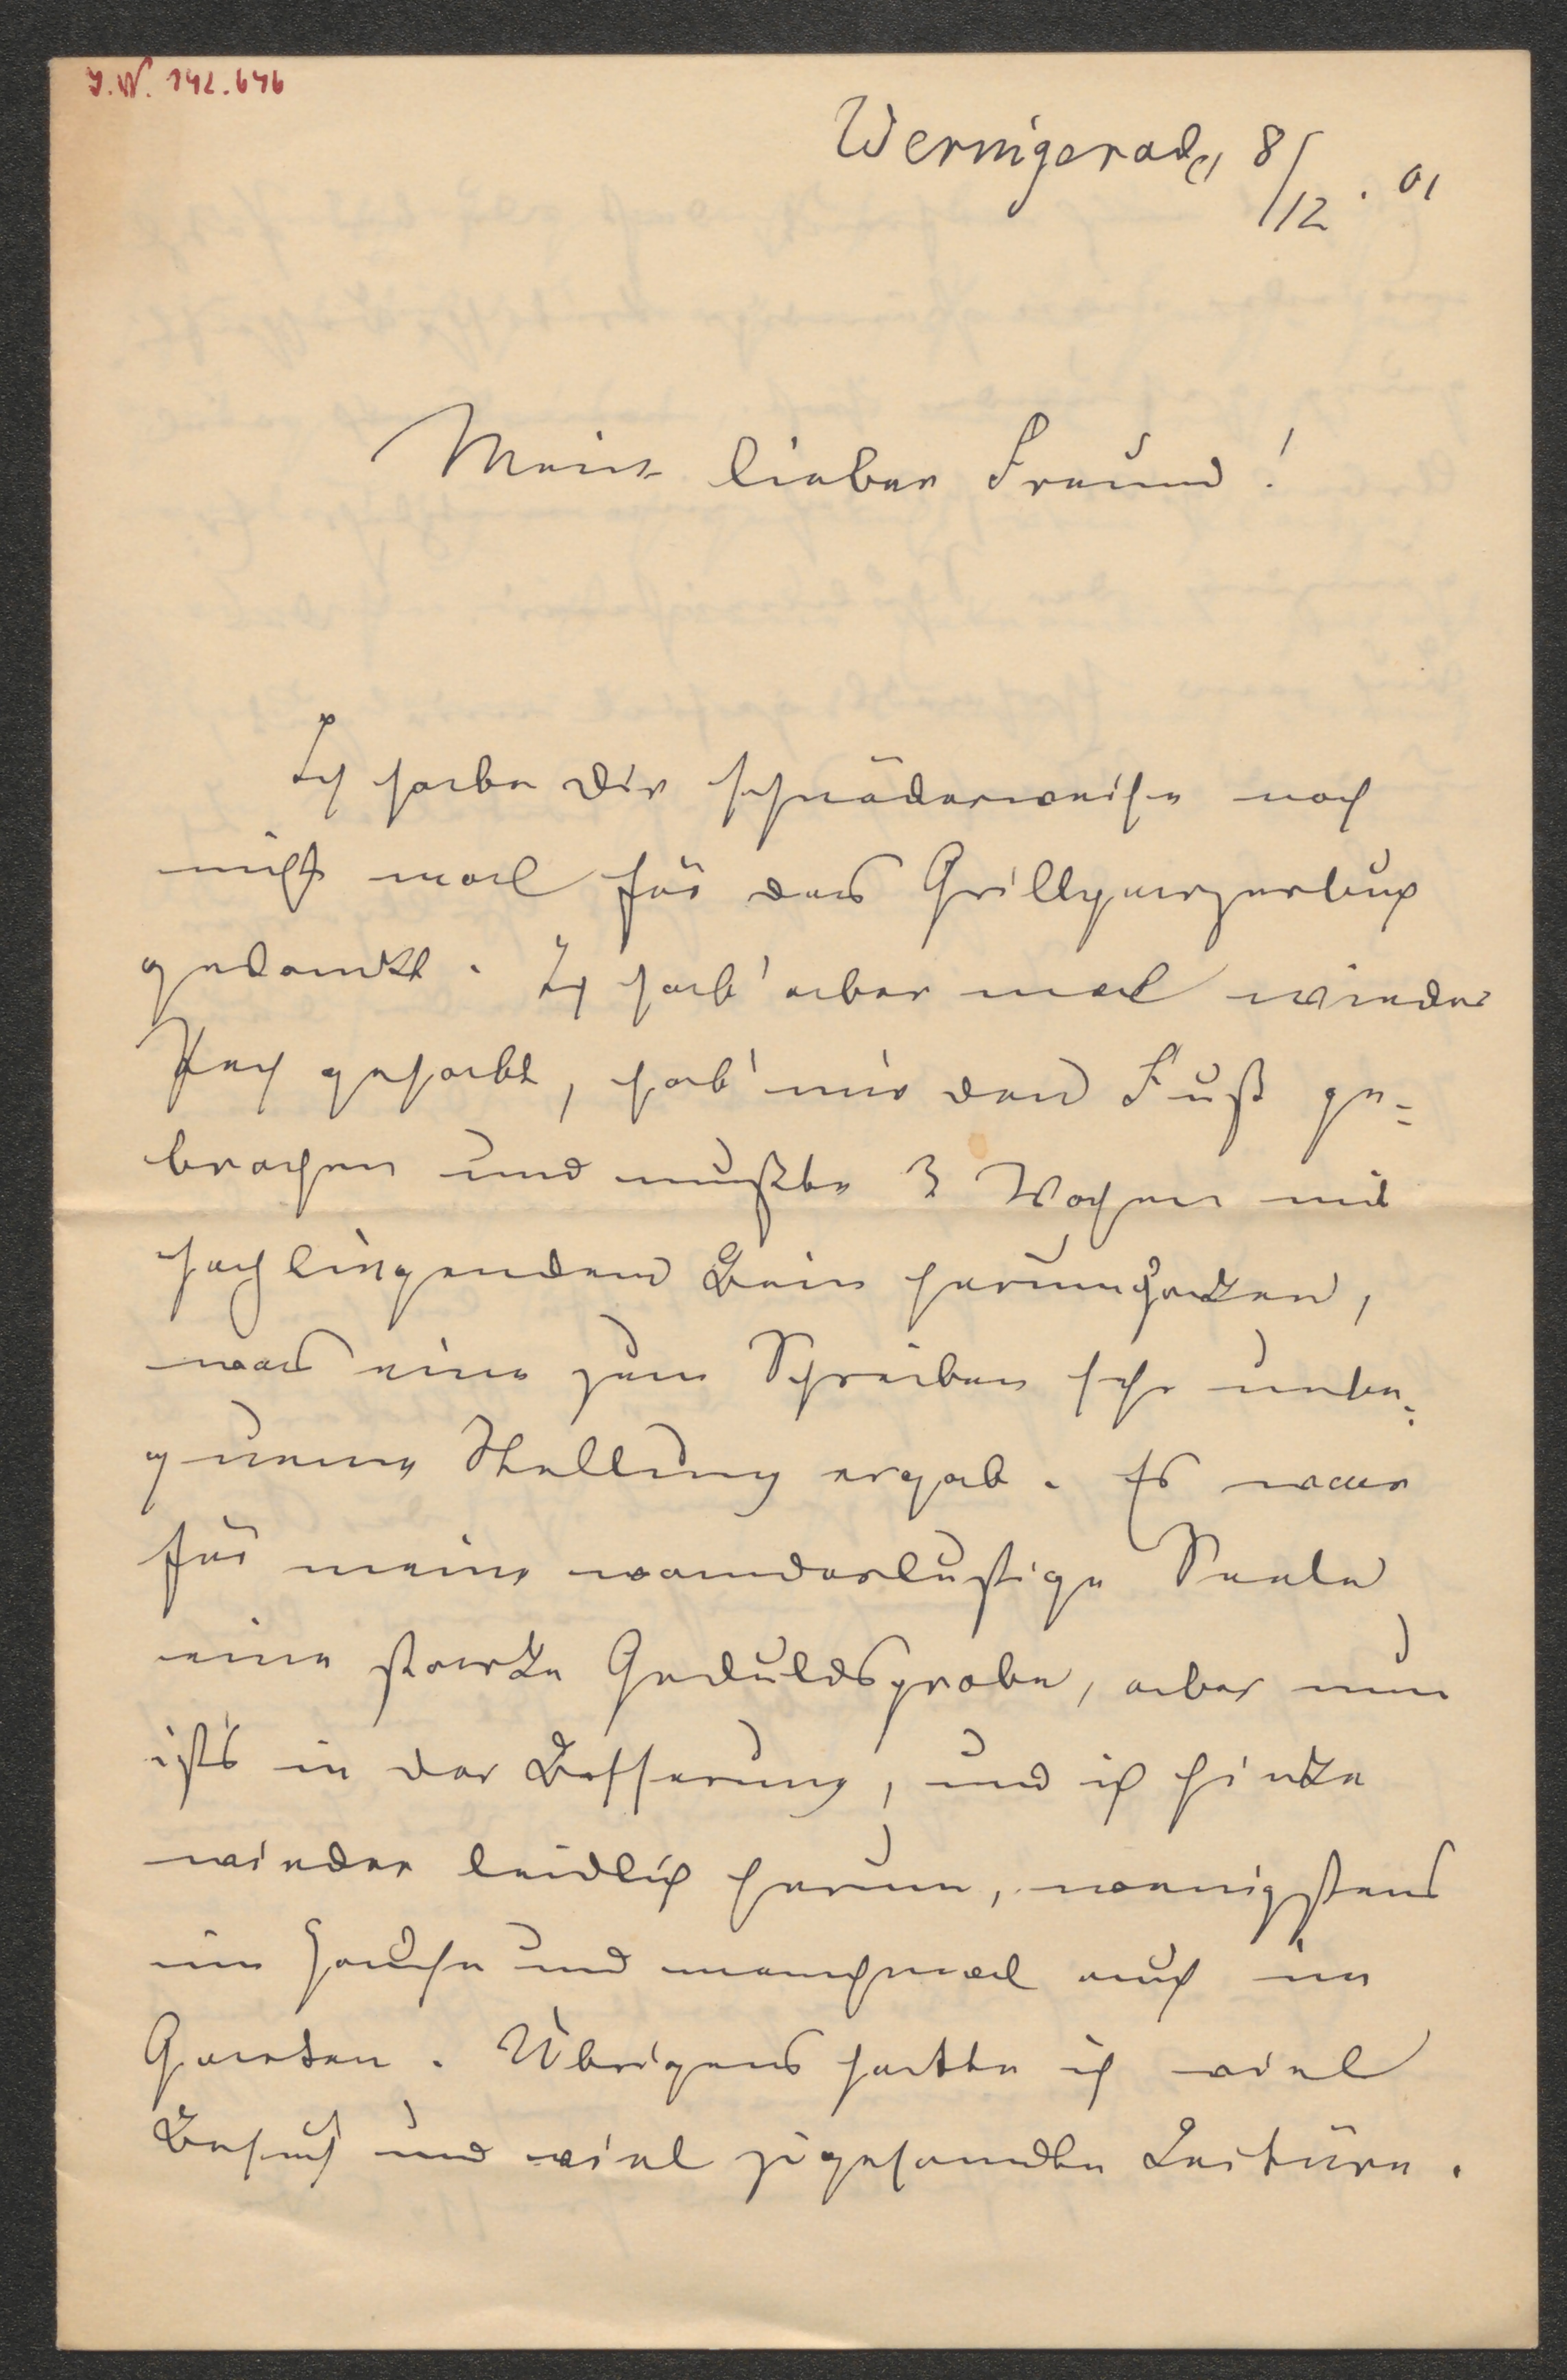 J.N. 142.646
Wernigerode, 8/12. 01
Mein lieber Freund!
Ich habe Dir schnöderweise noch
nicht mal für das Grillparzerbuch
gedankt. Ich hab' aber mal wieder
Pech gehabt, hab' mir den Fuß ge=
brochen und mußte 3 Wochen mit
hochliegendem Bein herumhocken,
was eine zum Schreiben sehr unbe=
queme Stellung ergab. Es war
für meine wanderlustige Seele
eine starke Geduldsprobe, aber nun
ist's in der Besserung, und ich hinke
wieder leidlich herum, wenigstens
im Hause und manchmal auch im
Garten. Übrigens hatte ich viel
Besuch und viel zugesandte Lektüre.